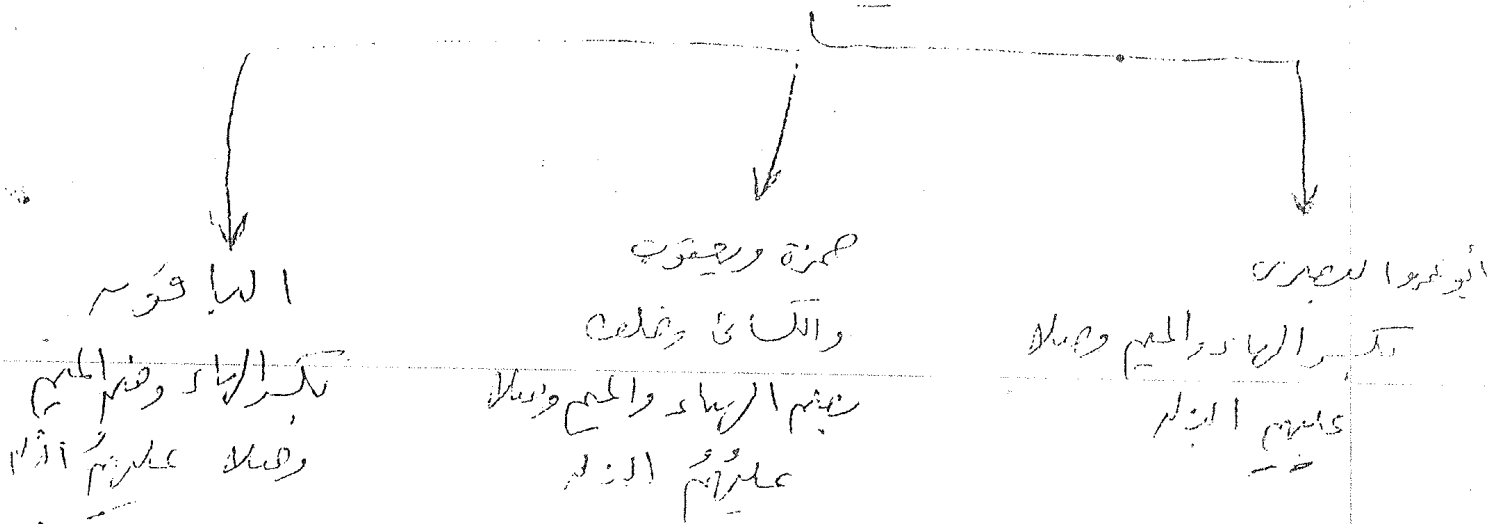 أبو عمرو البصري
بكسر الهاء والميم وصلا
عليهِمِ الذلة
حمزة ويعقوب
والكسائي وخلف
بضم الهاء والميم وصلا
عليهُمُ الذلة
الباقون
بكسر الهاء وضم الميم
وصلا عليهِمُ الذلة